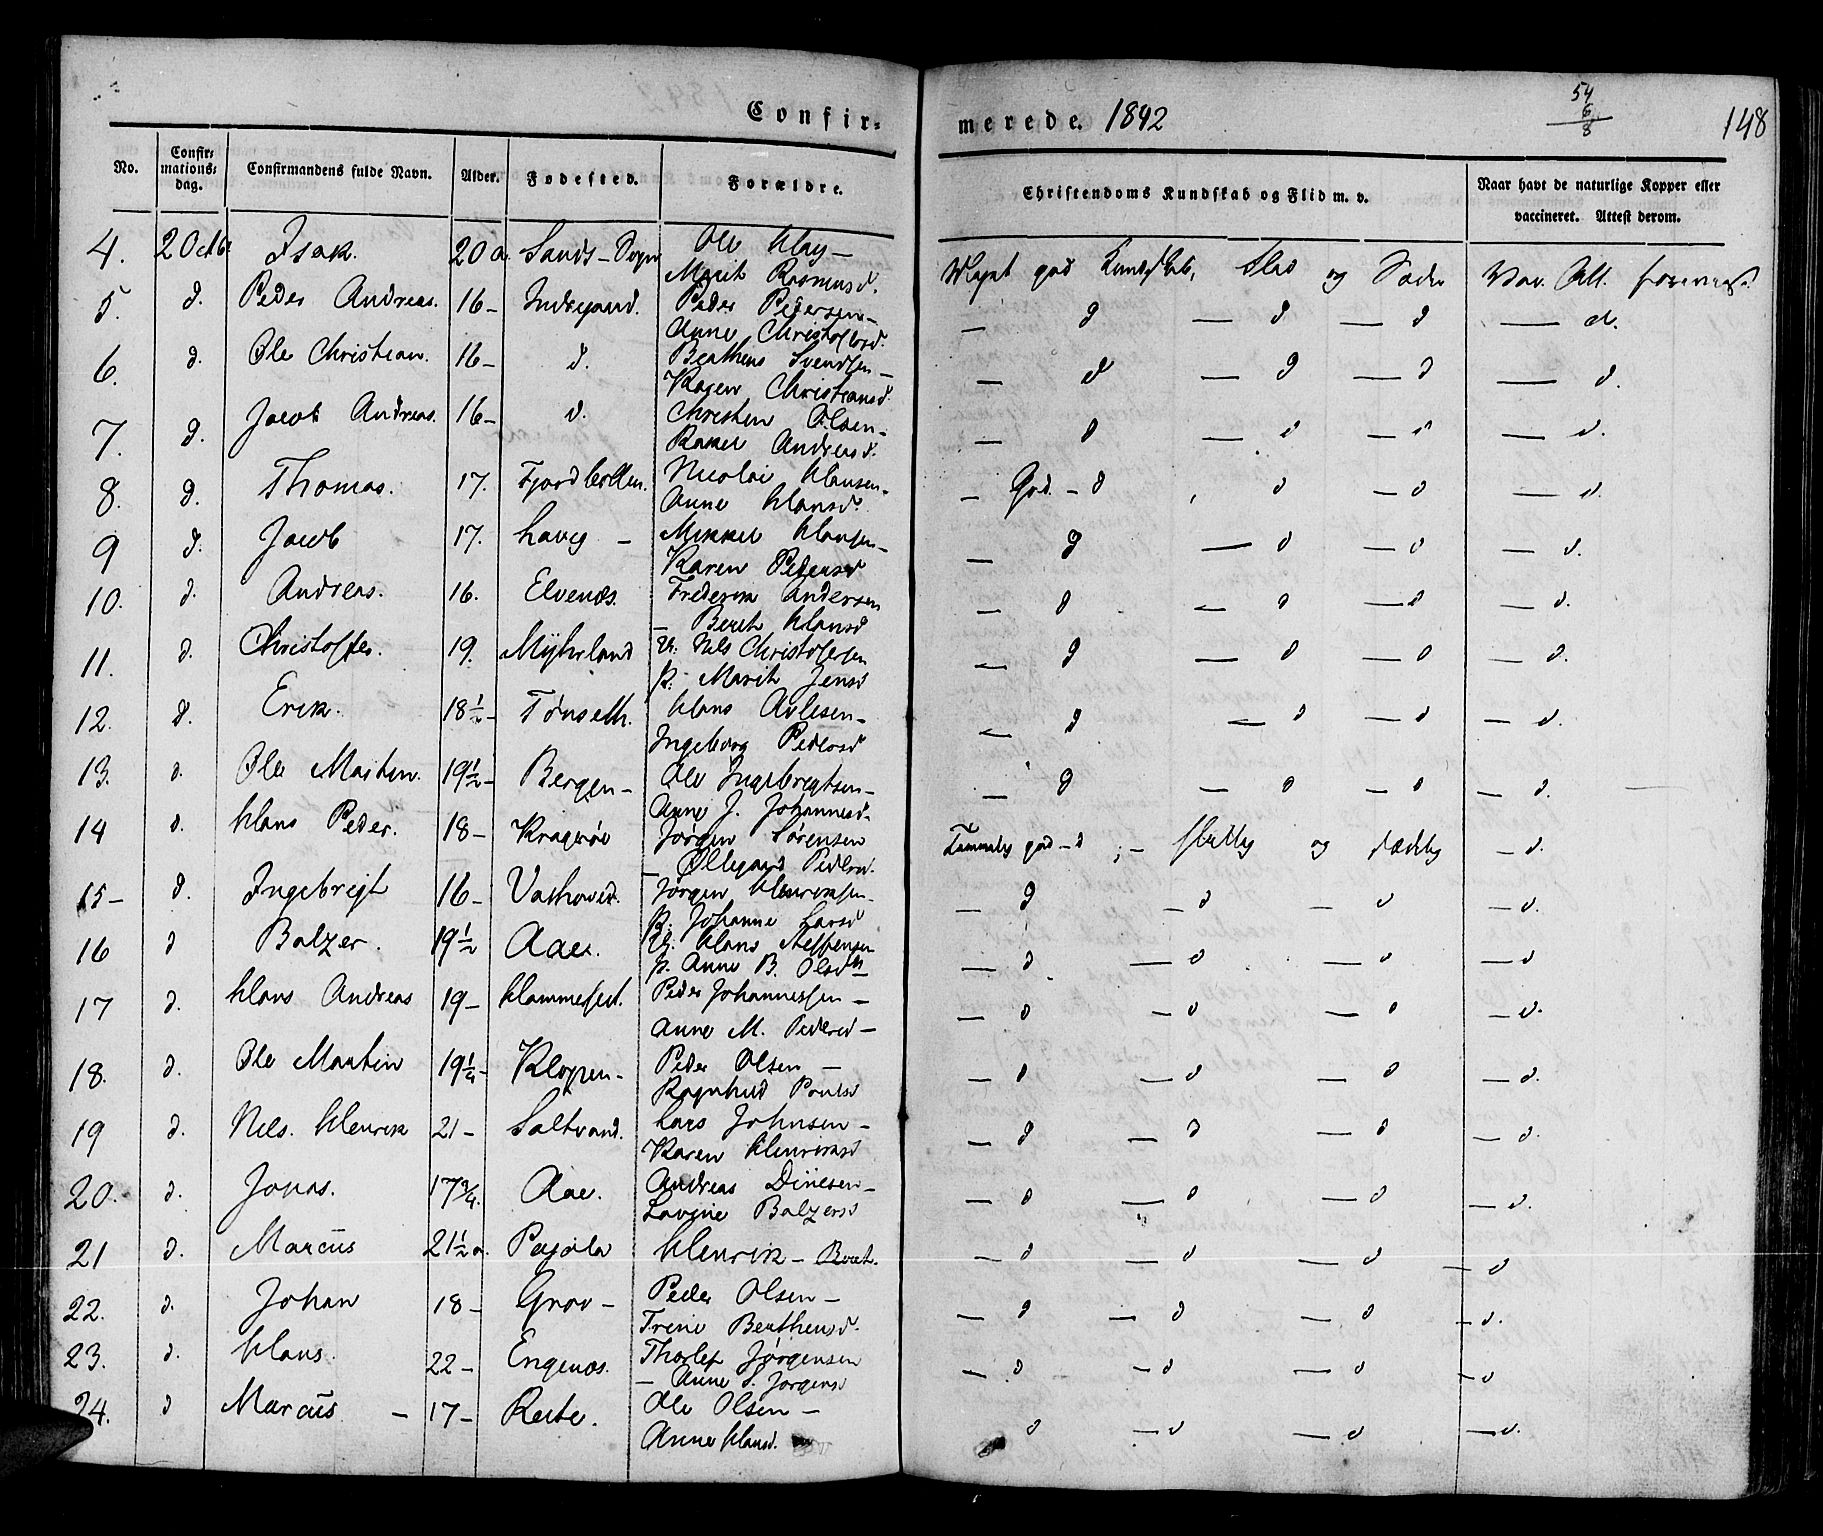 Confirmerede. 1842
54
6
8
148
No. Confirmationsdag. Confirmandens fulde Navn. Alder. Fødested. Forældre. Christendoms Kundskab og Flid m. v. Naar havt de naturlige Kopper eller vaccineret. Attest derom.
4. 2 Octb. Isak. 20 a. Sands-Sogn Ole
Marit Rasmusd. Meget god Kundskab, og Vac. Att.
5. d. Peder Andreas. 16- Indregaard. Peder Pedersen-
Anne Christofersd. — d — d — d — d.
6. d. Ole Christian. 16- d. Berthens Svendsen-
Karen Christiansd. — d — d — d — d.
7. d. Jacob Andreas. 16- d. Christen Olsen-
Rakel Andreasd. — d — d — d — d.
8. d. Thomas. 17. Fjordbotten. Nicolai Hansen-
Anne Hansd. — God - d, d — d — d.
9 d. Jacob 17. Havig - Mikkel Hansen-
Karen Pedersd — d — d — d — d.
10. d. Andreas. 16. Elvenæs. Frederik Andersen
- Beret Hansd — d — d — d — d.
11. d. Christoffer. 19. Myhrland U. Nils Christofersen
p. Marit Jensd — d — d — d — d.
12. d. Erik. 18 1/2- Tønseth. Hans Avlesen-
Ingeborg Pedersd — d — d — d — d.
13. d. Ole Martin. 19 1/2- Bergen- Ole Ingebrigtsen-
Anne J. Johannesd- — d — d — d — d.
14 d. Hans Peder. 18- Kragerøe Jørgen Sørensen
- Øllegaard Pedersd. Temmelig god - d; - flittig og sædelig — d.
15- d. Ingebrigt 16- Jørgen Henriksen-
p. Johanne Larsd — d — d — d — d.
16 d Balzer. 19 1/2 Aae. U. Hans Steffensen
p. Anne B. Olsd — d — d — d — d
17 d. Hans Andreas 19- Hammerfest. Peder Johannessen-
Anne M. Pedersd- — d — d — d — d.
18. d. Ole Martin 19 1/4- Kloven- Peder Olsen-
Ragnhild Paulsd — d — d — d — d.
19 d. Nils Henrik 21- Saltvand. Lars Johnsen-
Karen Henriksd — d — d — d — d.
20. d. Jonas. 17 3/4. Aae. Andreas Dinesen-
Lavine Balzersd — d — d — d — d.
21 d. Marcus 21 1/2 a. Pajala Henrik - Beret. — d — d — d — d
22. d. Johan 18- Grov- Peder Olsen-
Trine Berthensd. — d — d — d — d.
23. d. Hans. 22- Engenæs. Thorlef Jørgensen
- Anne S. Jørgensd — d — d — d — d
24. d Marcus - 17- Ole Olsen-
Anne Hansd. d — d — d — d.